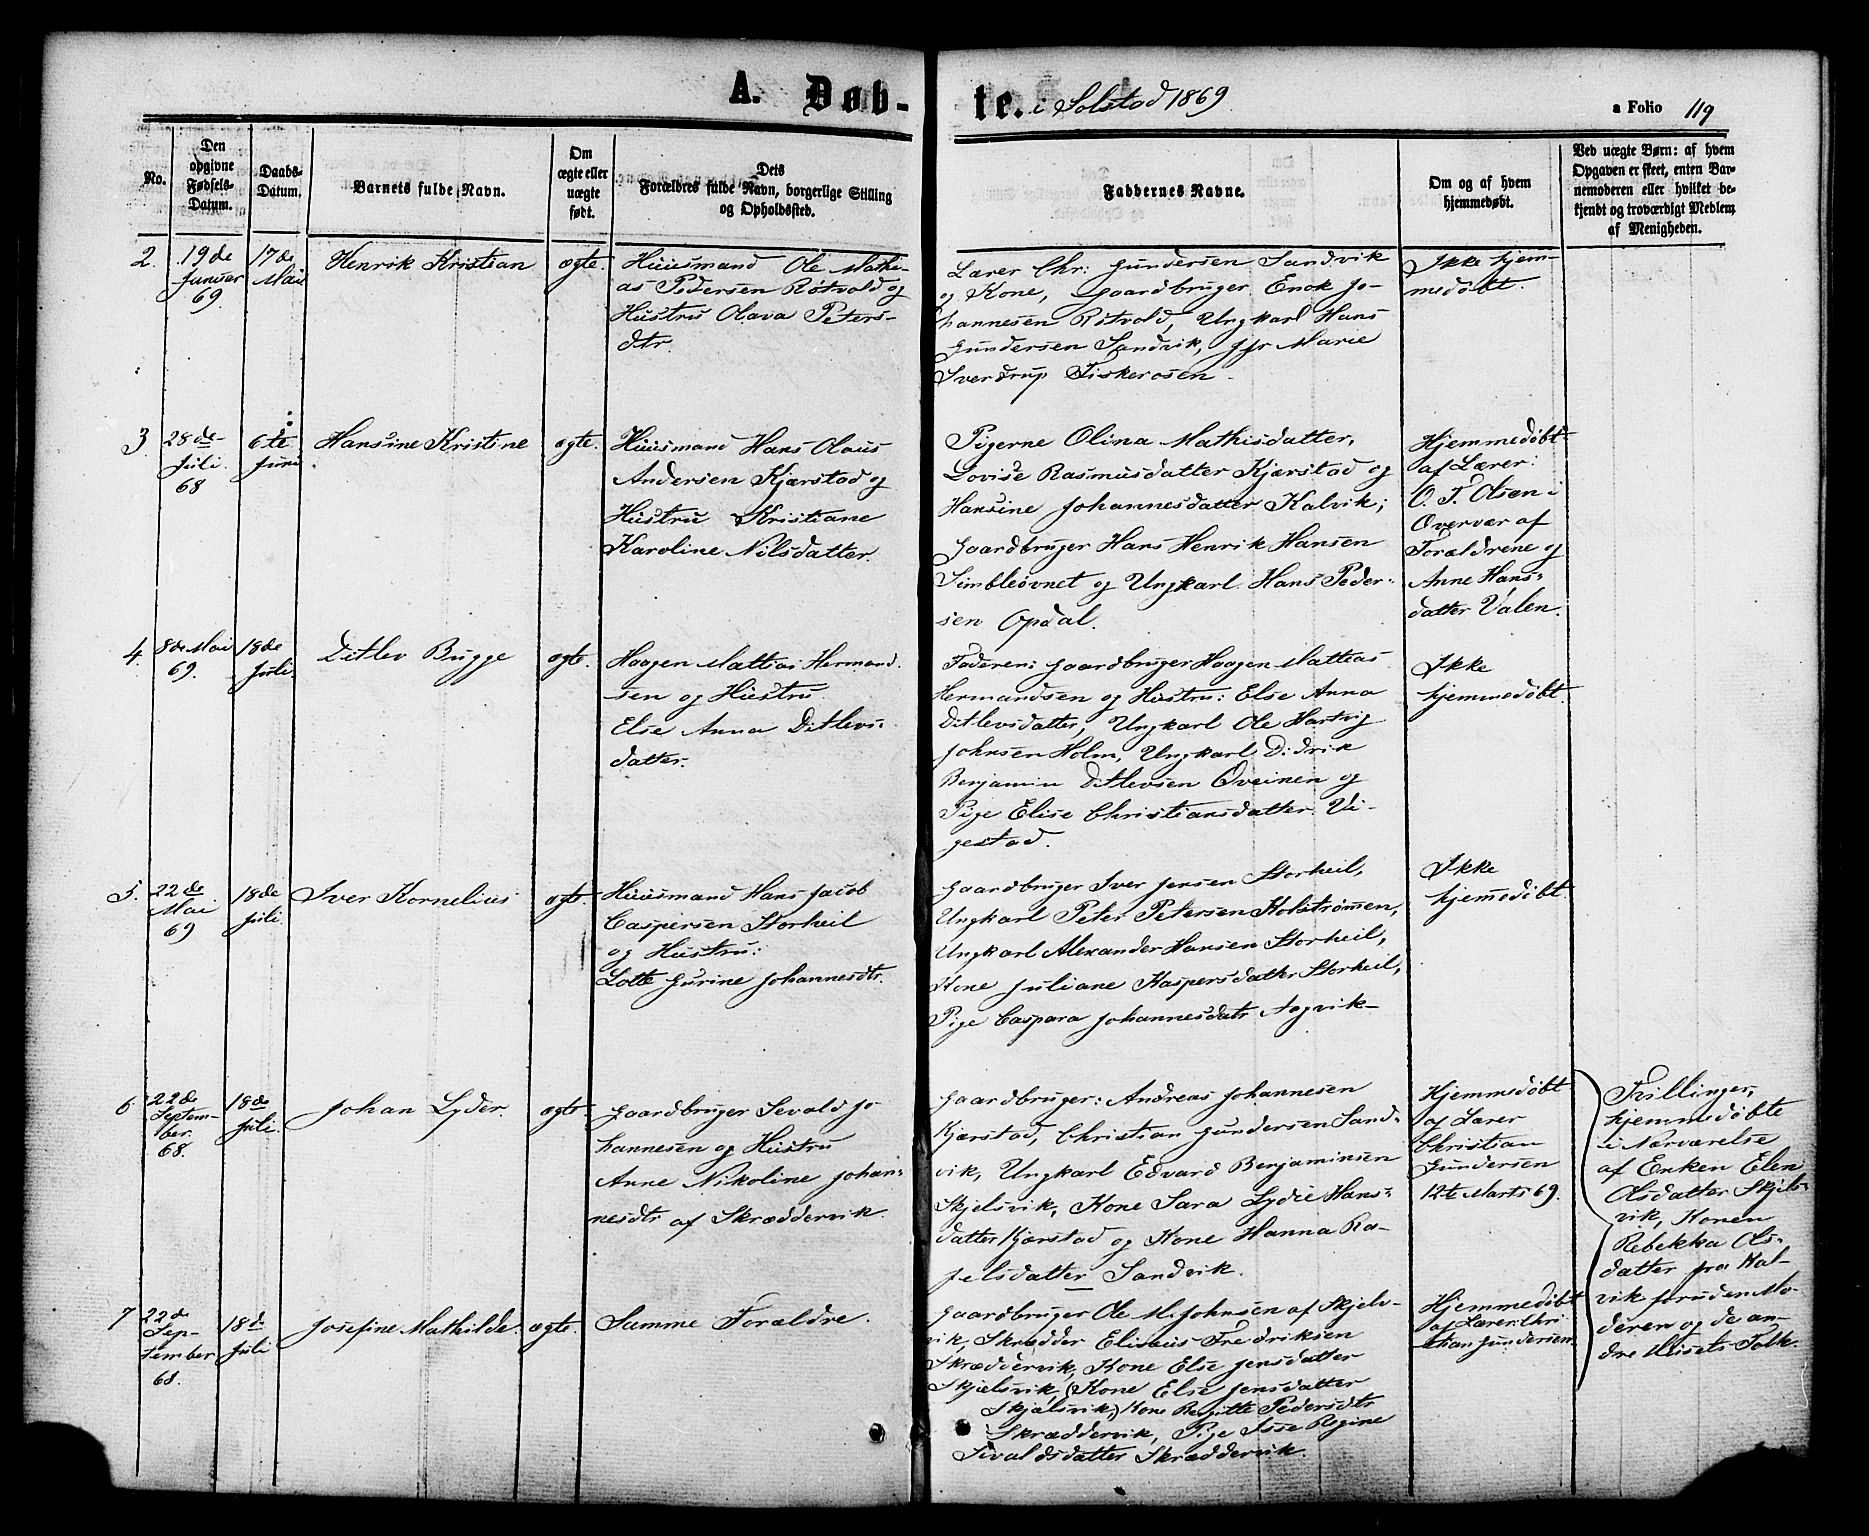 A. Døb-
te. i Solstad 1869
a Folio 119
No.
Den
opgivne
Fødsels-
Datum.
Daabs-
Datum.
Barnets fulde Navn.
Om
ægte eller
uægte
født.
Dets
Forældres fulde Navn, borgerlige Stilling
og Opholdssted.
Faddernes Navne.
Om og af hvem
hjemmedøbt.
Ved uægte Børn: af hvem
Opgaven er skeet, enten Bar-
nemoderen eller hvilket be-
kjendt og troværdigt Medlem
af Menigheden.
2.
19de
Januar
69
17de
Mai
Henrik Kristian
ægte.
Huusmand Ole Mathi-
as Pedersen Røtvold og
Hustru Olava Peters-
dtr.
Lærer Chr: Gundersen Sandvik
og Kone, Gaardbruger Enok Jo-
hannesen Røtvold, Ungkarl Hans
Gundersen Sandvik, Jfr Marie
Sverdrup Fiskerosen.
Ikke hjem-
medøbt.
3.
28de
Juli.
68
6te
Juni
Hansine Kristine
ægte.
Huusmand Hans Olaus
Andersen Kjærstad og
Hustru Kristiane
Karoline Nilsdatter.
Pigerne Olina Mathisdatter,
Lovise Rasmusdatter Kjærstad og
Hansine Johannesdatter Kalvik;
Gaardbruger Hans Henrik Hansen
Simbleøvnet og Ungkarl Hans Peder-
sen Opdal.
Hjemmedøbt
af Lærer:
O. T. Olsen i
Overvær af
Forældrene og
Anne Hans-
datter Valen.
4.
8de Mai
69.
18de
Juli.
Ditlev Bugge
ægte.
Haagen Mattias Hermand-
sen og Hustru
Else Anna Ditlevs-
datter.
Faderen: Gaardbruger Haagen Mattias
Hermandsen og Hustru: Else Anna
Ditlevsdatter, Ungkarl Ole Hartvig
Johnsen Holm, Ungkarl Didrik
Benjamin Ditlevsen Qveinen og
Pige Elise Christiansdatter Vi-
gestad.
Ikke
hjemmedøbt.
5.
22de
Mai
69
18de
Juli.
Iver Kornelius
ægte.
Huusmand Hans Jacob
Caspersen Storheil
og Hustru:
Lotte Gurine Johannesdtr.
Gaardbruger Iver Jensen Storheil,
Ungkarl Peter Petersen Holstrømen,
Ungkarl Alexander Hansen Storheil,
Kone Juliane Kaspersdatter Storheil,
Pige Caspara Johannesdatr Aagvik
Ikke
hjemmedøbt.
6
22de
Septem-
ber.
68.
18de
Juli.
Johan Lyder.
ægte.
Gaardbruger Sevald Jo-
hannesen og Hustru
Anne Nikoline Johan-
nesdtr af Skræddervik.
Gaardbruger: Andreas Johannesen
Kjærstad, Christian Gundersen Sand-
vik, Ungkarl Edvard Benjaminsen
Skjelsvik, Kone Sara Lydie Hans-
datter Kjærstad og Kone Hanna Ra-
felsdatter Sandvik.
Hjemmedøbt
af Lærer
Christian
Gundersen
12te Marts 69.
Tvillinger,
hjemmedøbte
i Nærværelse
af Enken Elen
Olsdatter Skjels-
vik, Konen
Rebekka Ols-
datter fra Kal-
vik foruden Mo-
deren og de an-
dre Husets Folk.
7
22de
Sep-
tember
68.
18de
Juli
Josefine Mathilde.
ægte.
Samme Forældre.
Gaardbruger Ole M. Johnsen af Skjels-
vik, Skrædder Elisæus Fredriksen
Skræddervik, Kone Else Jensdatter
Skjælsvik, (Kone Else Jensdatter
Skjælsvik,) Kone Birgitte Pedersdtr
Skræddervik, Pige Isse Regine
Sivaldsdatter Skræddervik.
Hjemmedøbt
af Lærer: Chri
stian Gundersen.